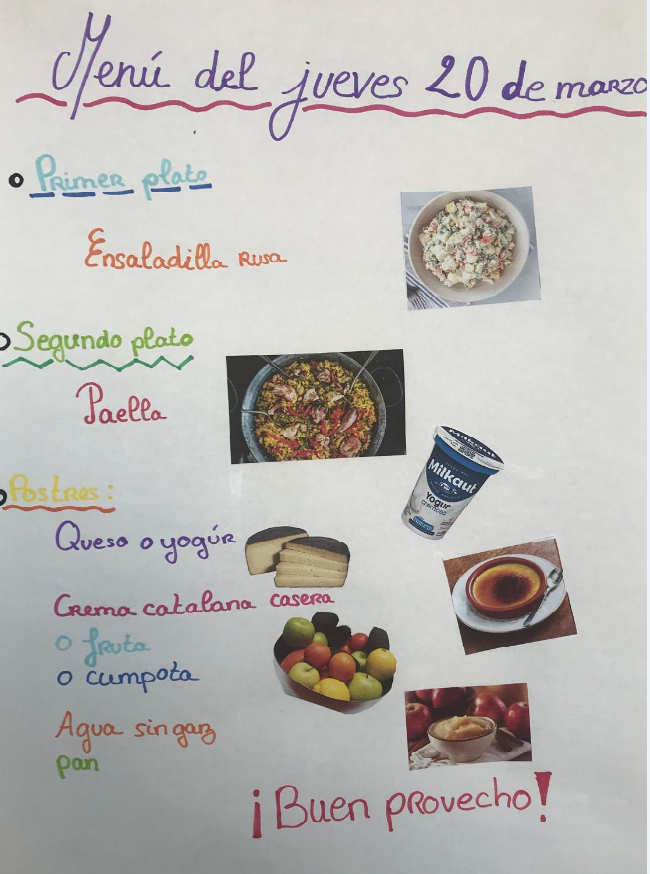 Menú del jueves 20 de marzo
Primer plato
Ensaladilla Rusa
Segundo plato
Paella
Postres:
Milkaut
Yogur
cremoso
natural
Queso o yogúr
Crema catalana casera
o fruta
o cumpota
Agua sin gaz
pan
¡Buen provecho!